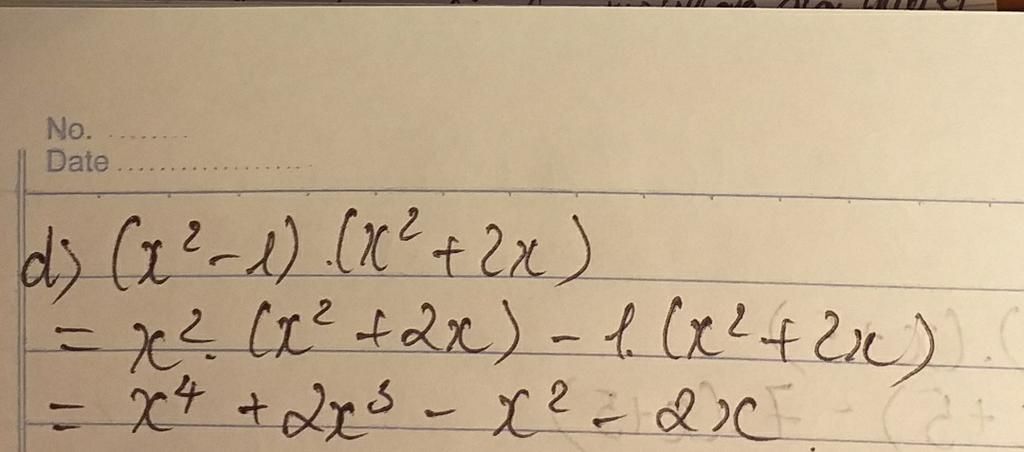 No. ........
Date ....................
d) (x² - 1) . (x² + 2x)
= x² . (x² + 2x) - 1. (x² + 2x)
= x⁴ + 2x³ - x² - 2x